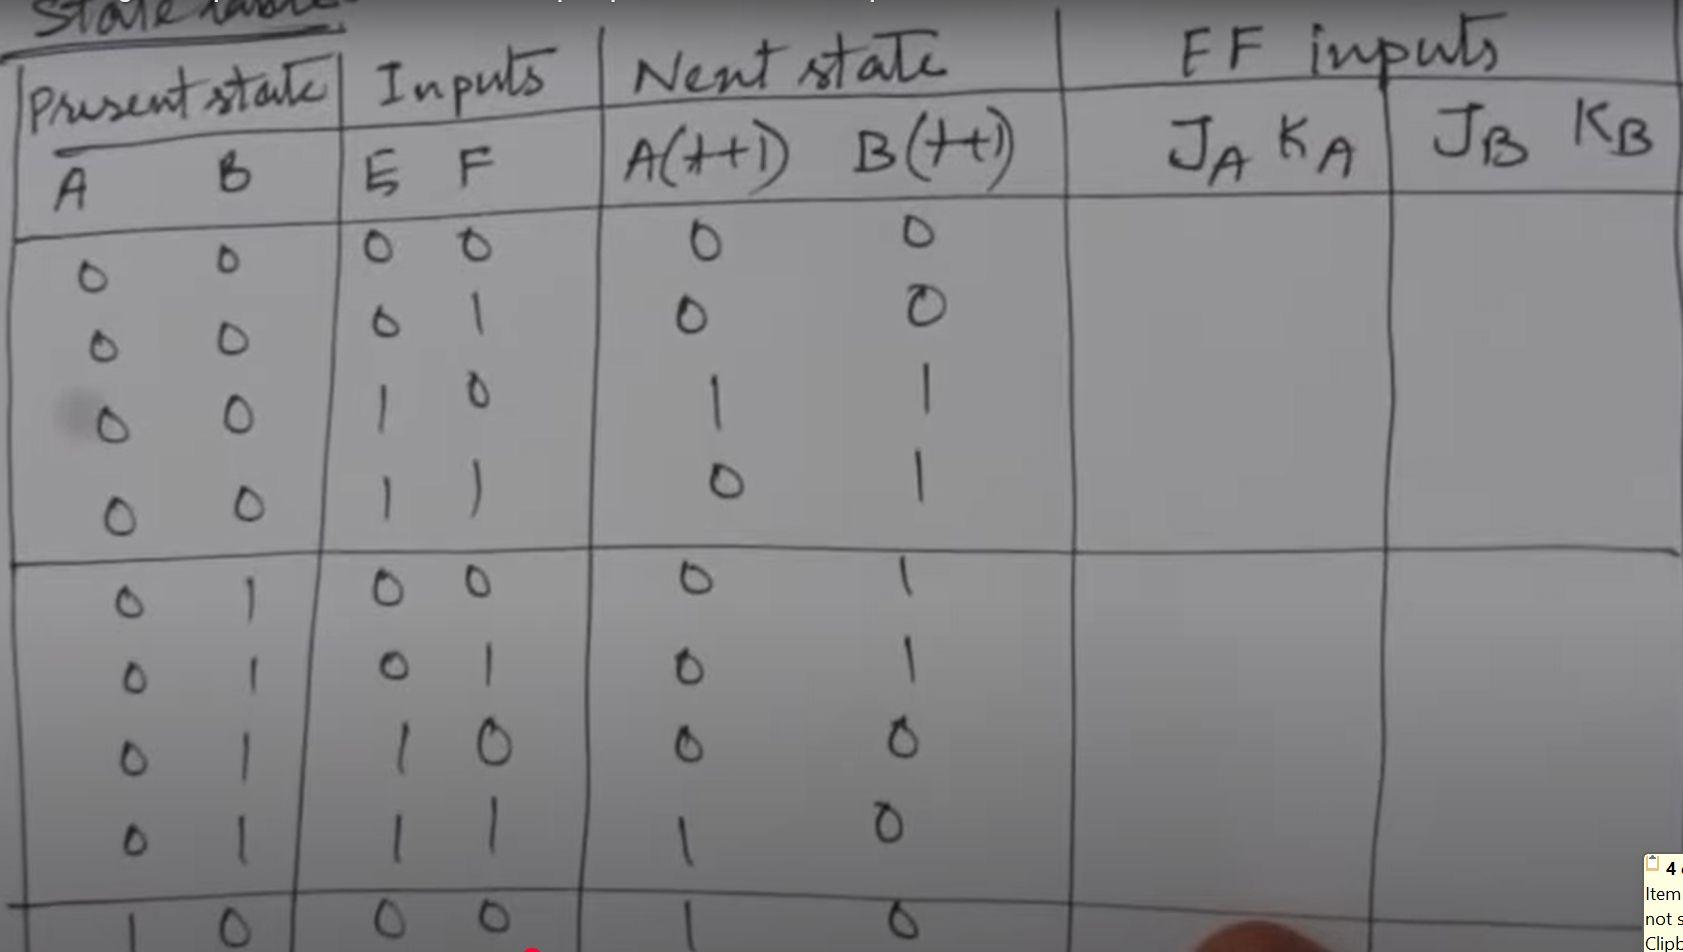 State table
Present state Inputs Next state FF inputs
A B E F A(t+1) B(t+1) JA KA JB KB
0 0 0 0 0 0
0 0 0 1 0 0
0 0 1 0 1 1
0 0 1 1 0 1
0 1 0 0 0 1
0 1 0 1 0 1
0 1 1 0 0 0
0 1 1 1 1 0
1 0 0 0 1 0
4
Item
not s
Clipb